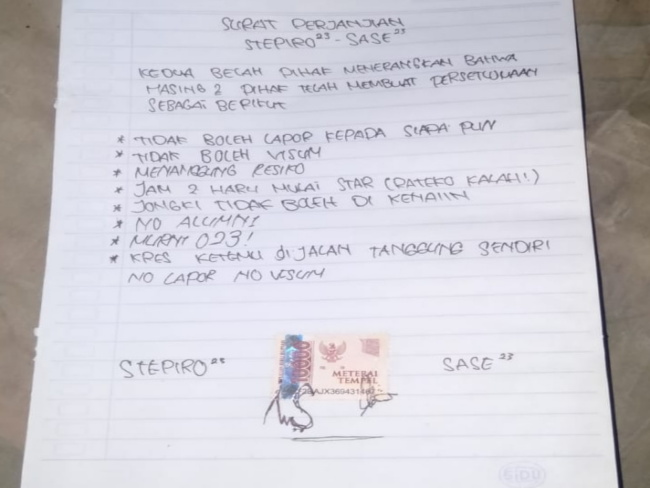 SURAT PERJANJIAN
STEPIRO²³ - SASE²³
KEDUA BELAH PIHAK MENERANGKAN BAHWA
MASING 2 PIHAK TELAH MEMBUAT PERSETUJUAAN
SEBAGAI BERIKUT
* TIDAK BOLEH LAPOR KEPADA SIAPA PUN
* TIDAK BOLEH VISUM
* MENANGGUNG RESIKO
* JAM 2 HARU MULAI STAR (RATEKO KALAH!)
* JONGKI TIDAK BOLEH DI KENAIIN
* NO ALUMNI
* MURNI 023!
* KRES KETEMU di JALAN TANGGUNG SENDIRI
NO LAPOR NO VISUM
STEPIRO²³
10000
METERAI
TEMPEL
SASE²³